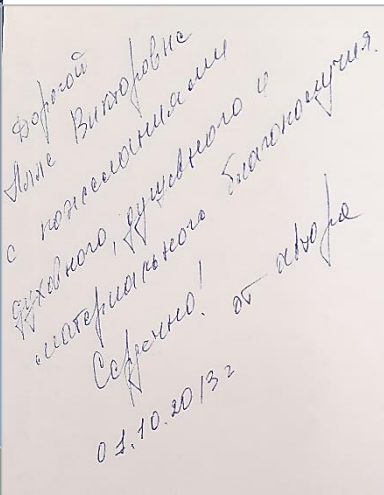 Дорогой
Алле Викторовне
с пожеланиями
духовного, душевного и
материального благополучия.
Сердечно! от автора
01.10.2013г